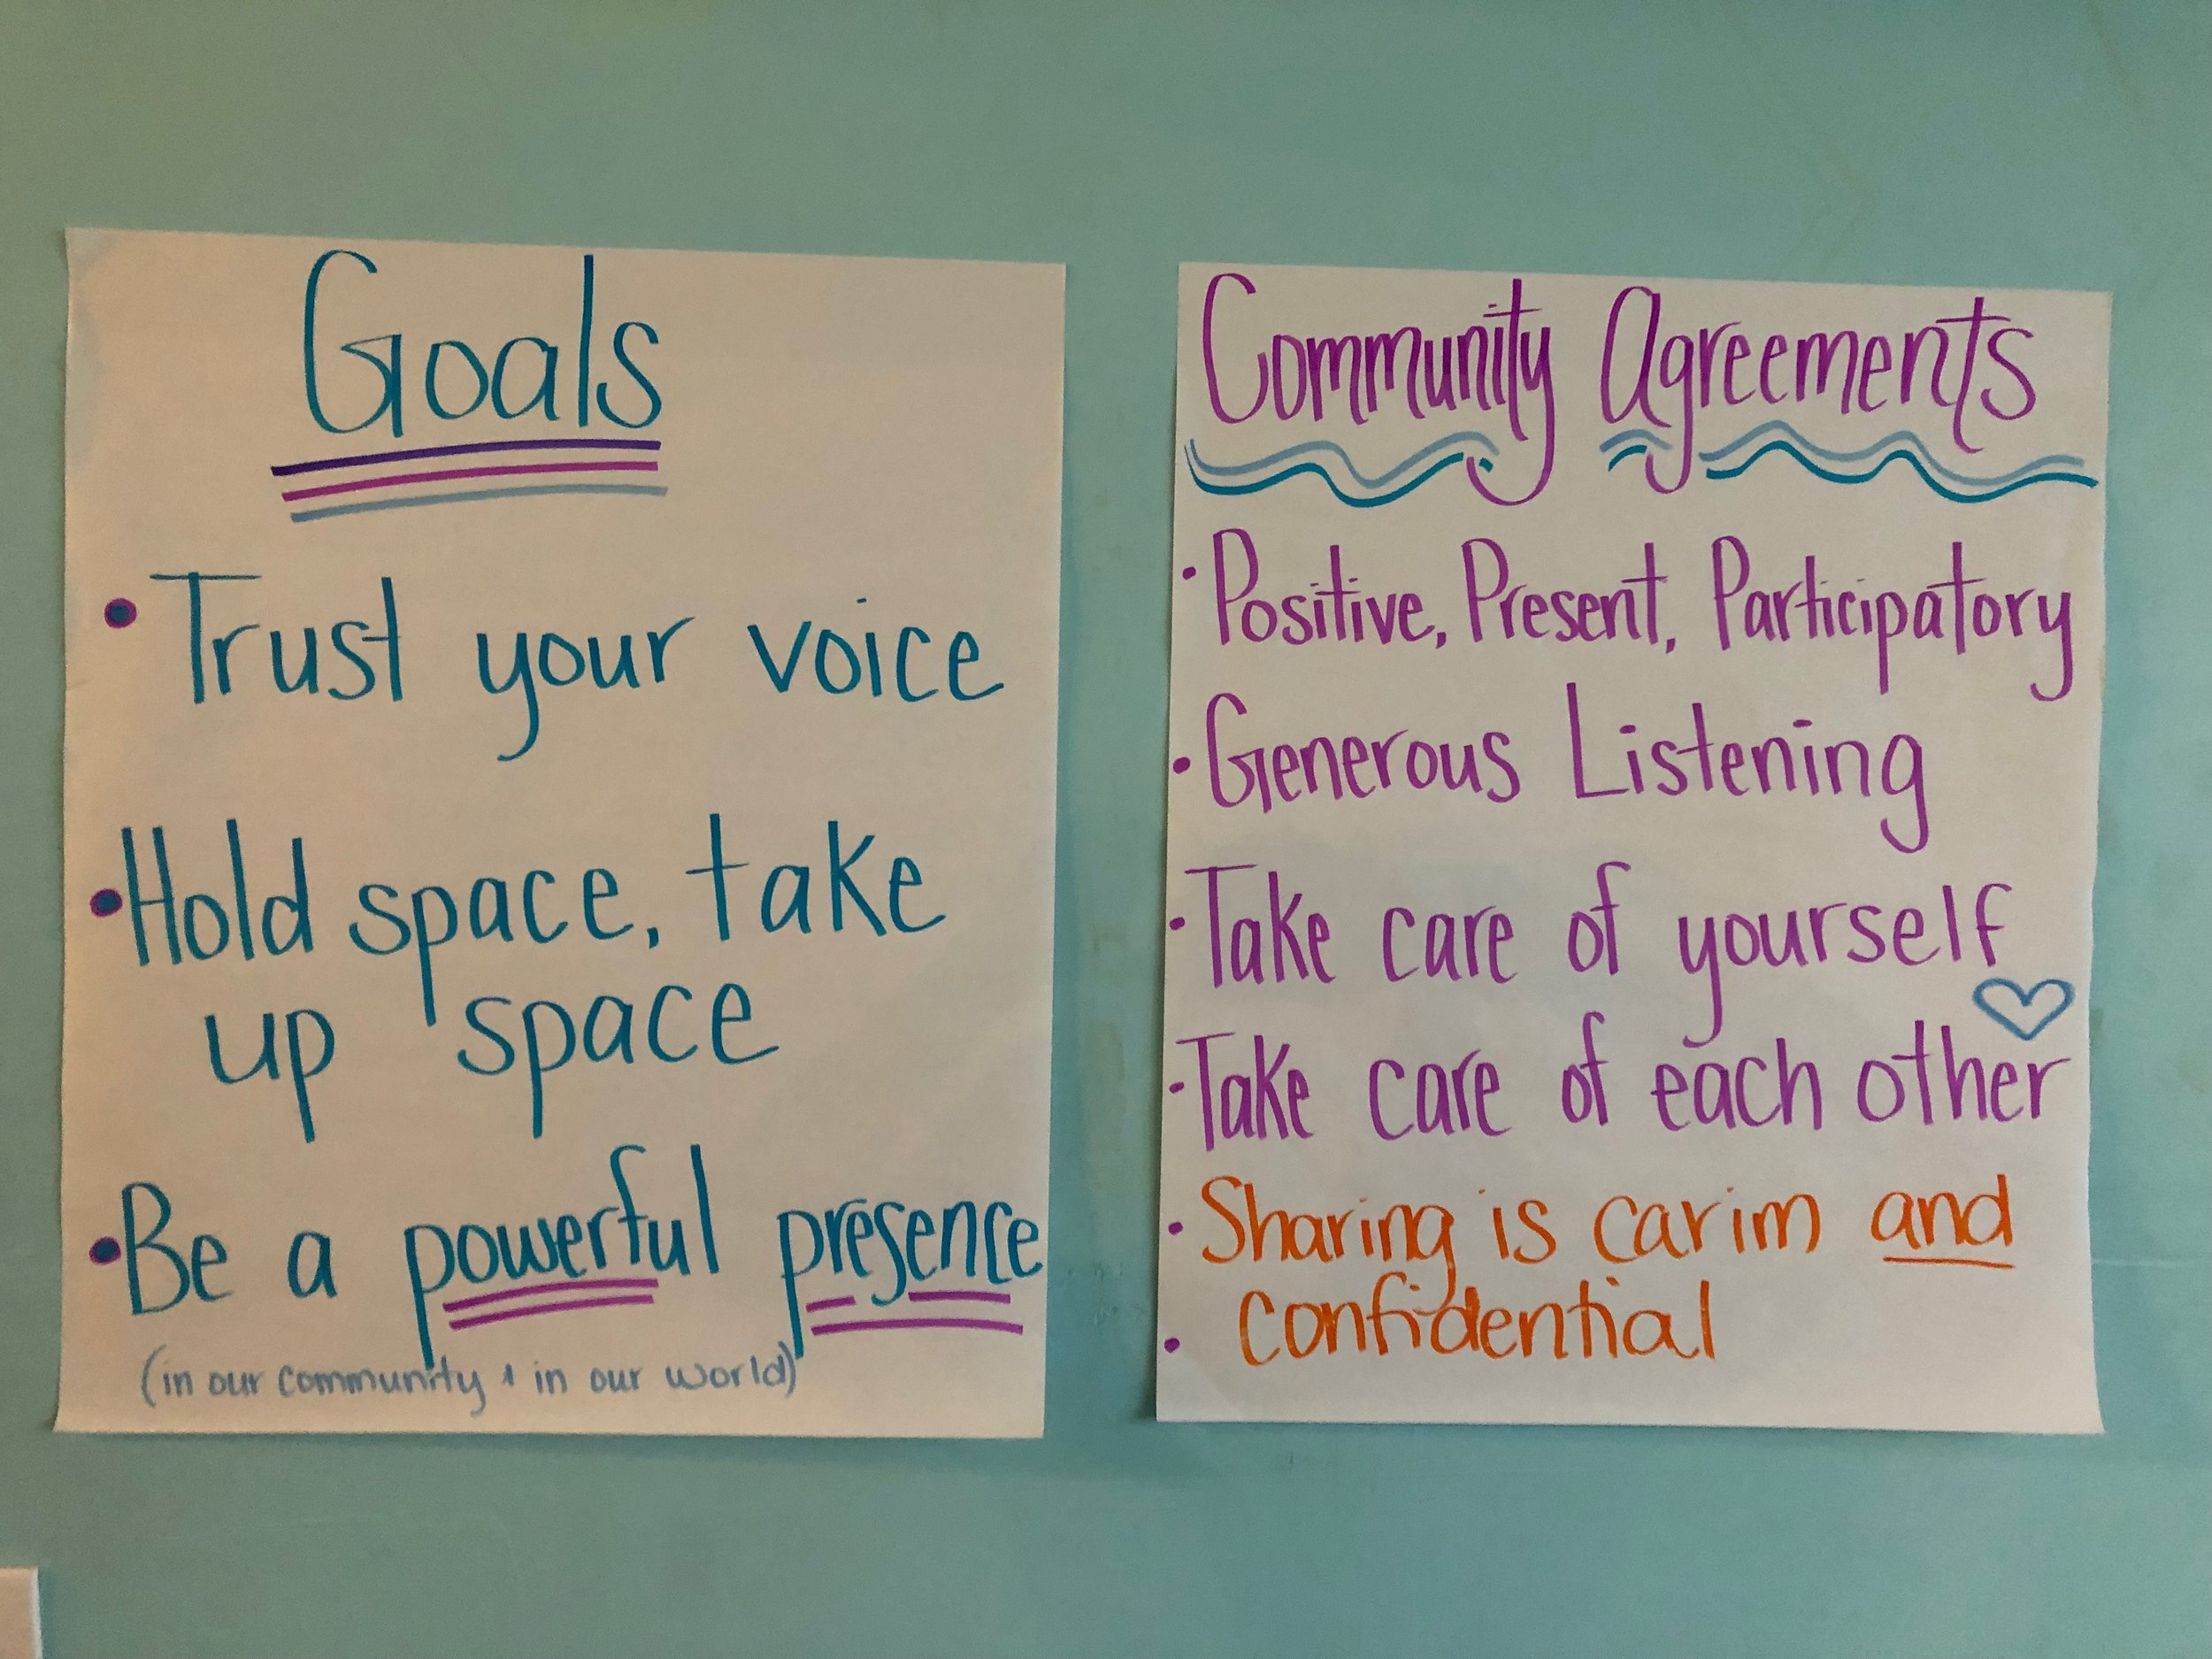 Goals
• Trust your voice
• Hold space, take
up space
• Be a powerful presence
(in our community & in our world)
Community Agreements
• Positive, Present, Participatory
• Generous Listening
• Take care of yourself
• Take care of each other
• Sharing is carim and
• confidential